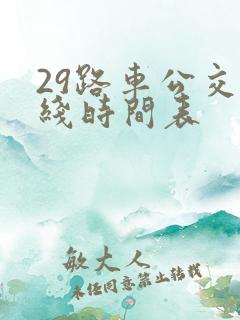 29路車公交
綫時間表
敏大人
未經同意禁止轉載